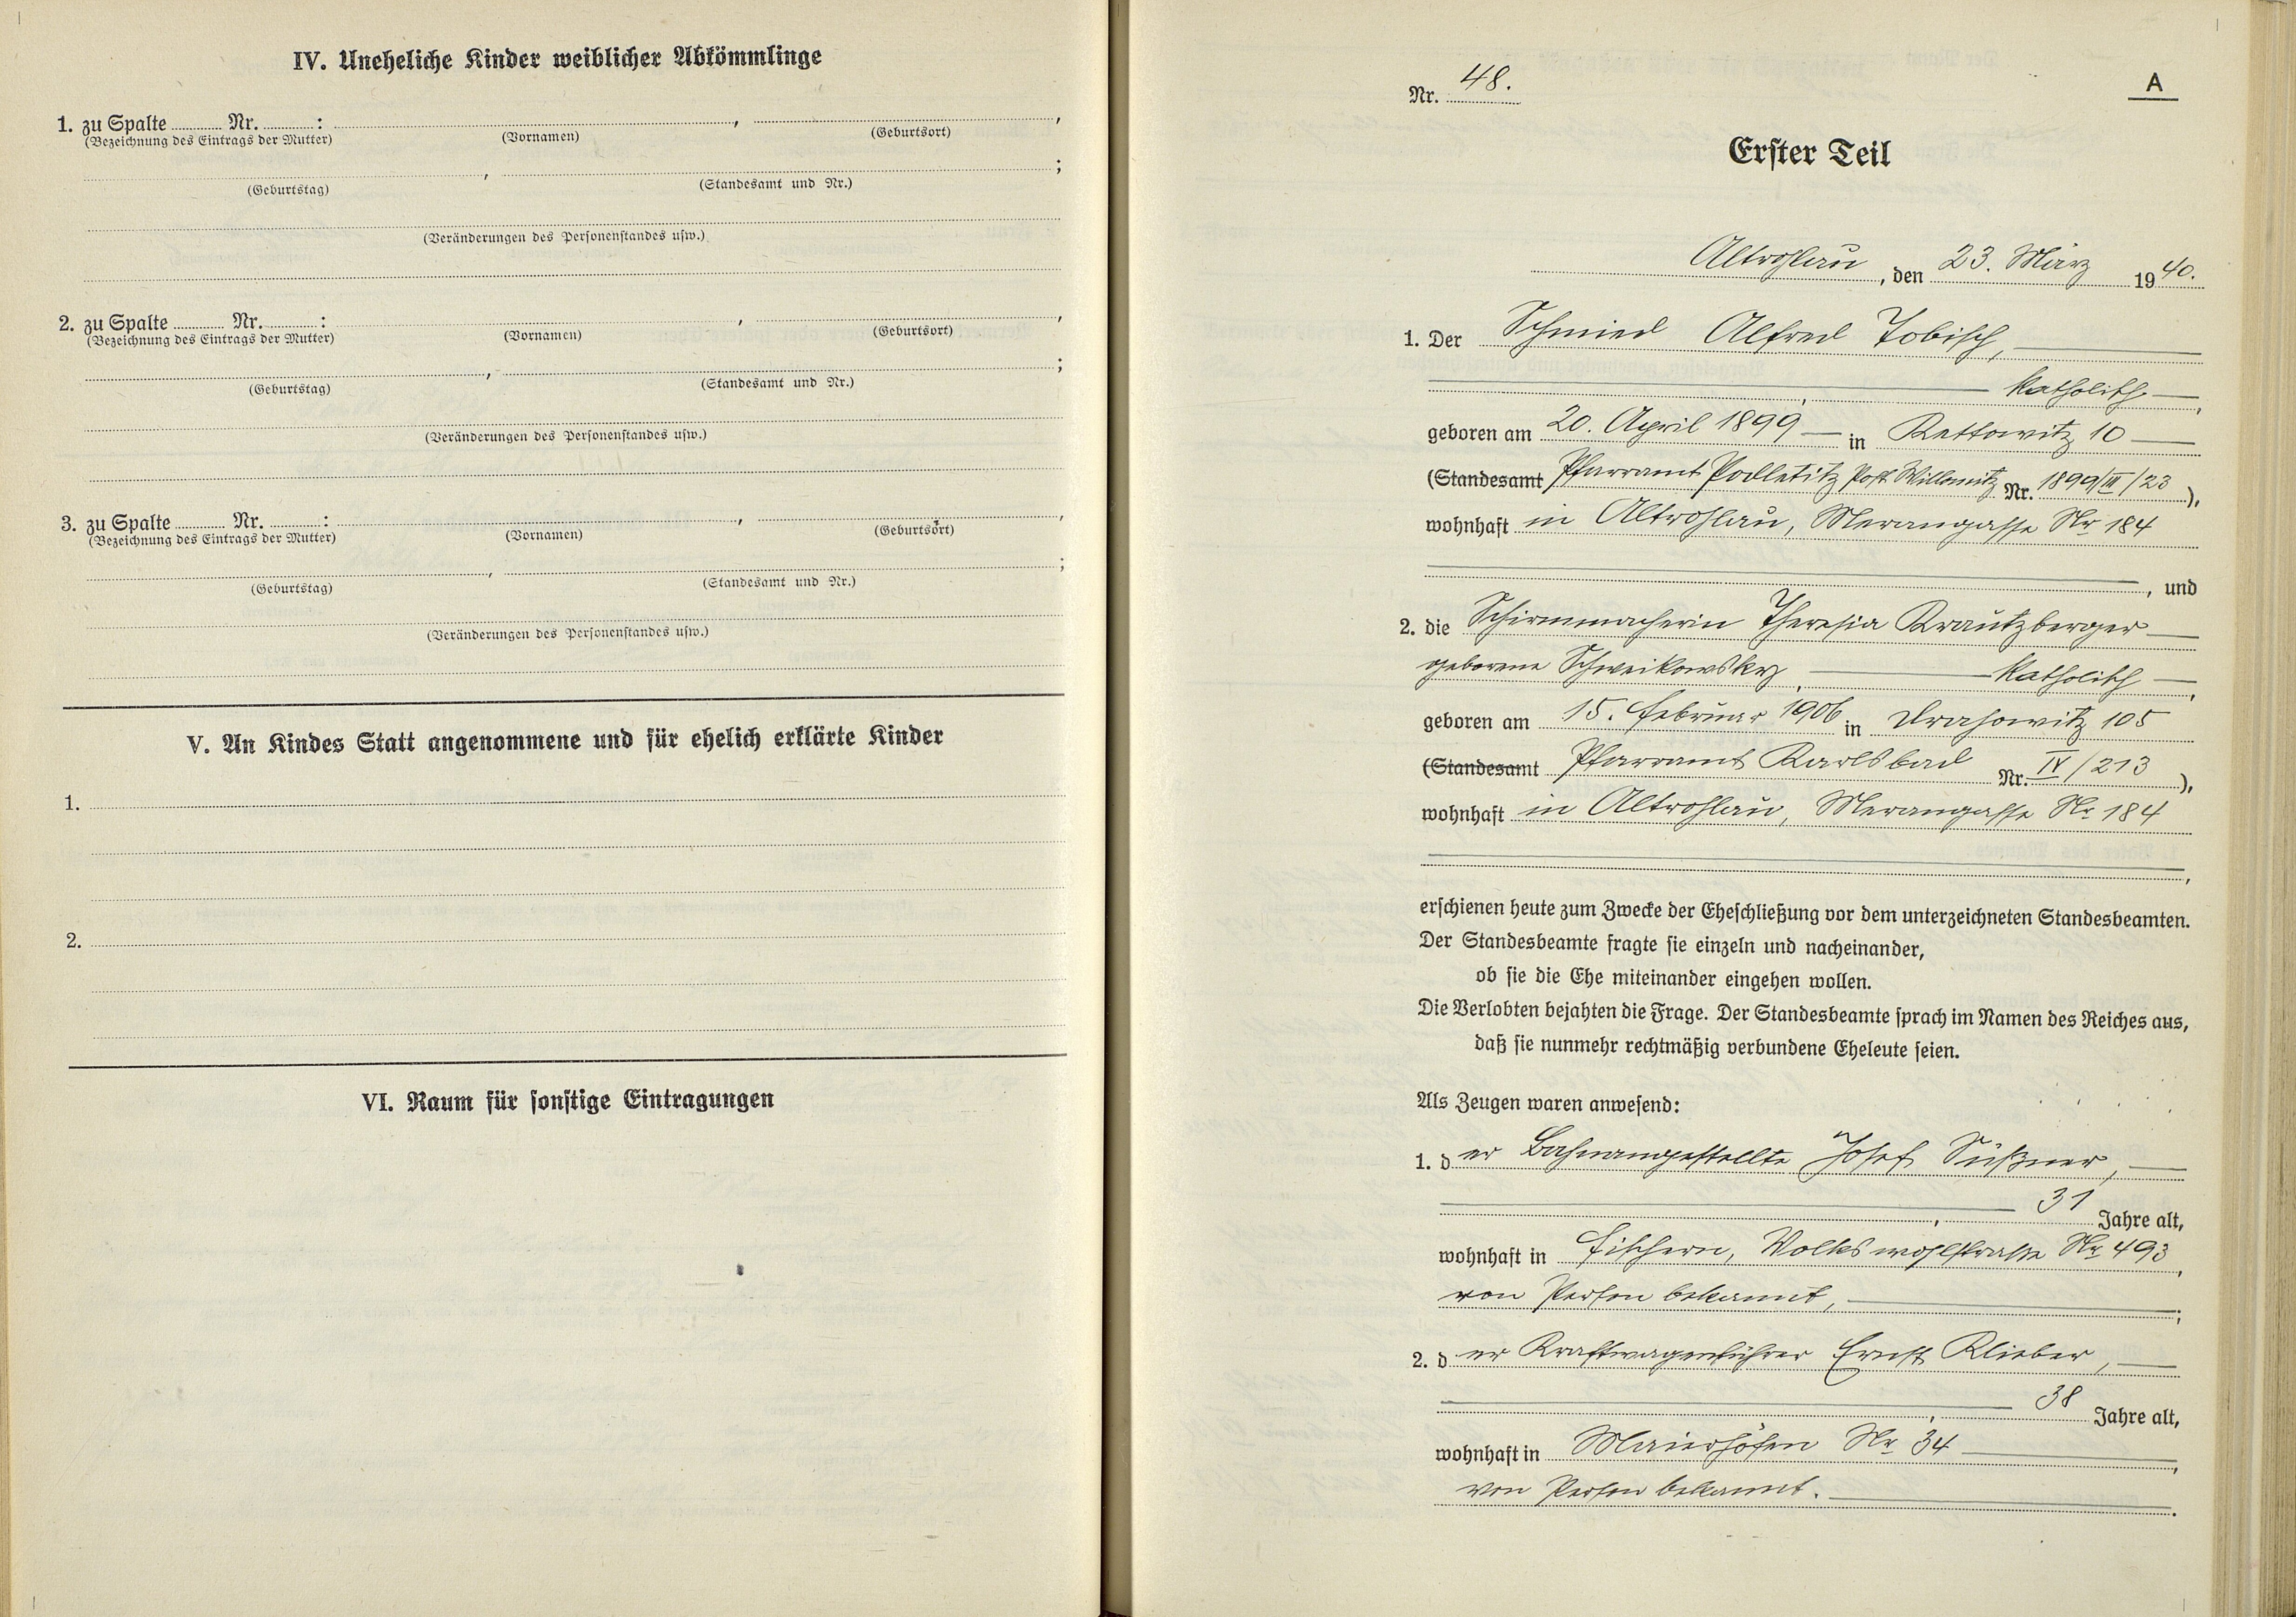 IV. Uneheliche Kinder weiblicher Abkömmlinge
1. zu Spalte ........ Nr. ........ : ........ , ........ ,
(Bezeichnung des Eintrags der Mutter) (Vornamen) (Geburtsort)
........ , ........ ;
(Geburtstag) (Standesamt und Nr.)
(Veränderungen des Personenstandes usw.)
2. zu Spalte ........ Nr. ........ : ........ , ........ ,
(Bezeichnung des Eintrags der Mutter) (Vornamen) (Geburtsort)
........ , ........ ;
(Geburtstag) (Standesamt und Nr.)
(Veränderungen des Personenstandes usw.)
3. zu Spalte ........ Nr. ........ : ........ , ........ ,
(Bezeichnung des Eintrags der Mutter) (Vornamen) (Geburtsort)
........ , ........ ;
(Geburtstag) (Standesamt und Nr.)
(Veränderungen des Personenstandes usw.)
V. An Kindes Statt angenommene und für ehelich erklärte Kinder
1.
2.
VI. Raum für sonstige Eintragungen
Nr. 48.
A
Erster Teil
Altrohlau, den 23. März 1940.
1. Der Schmied Alfred Tobisch,
, katholisch,
geboren am 20. April 1899 in Rettowitz 10
(Standesamt Pfarramt Podletitz Post Willomitz Nr. 1899/III/23),
wohnhaft in Altrohlau, Merangasse Nr 184
, und
2. die Schirmmacherin Theresia Krautzberger
geborene Schweikowsky, katholisch,
geboren am 15. Februar 1906 in Drahowitz 105
(Standesamt Pfarramt Karlsbad Nr. IV/213),
wohnhaft in Altrohlau, Merangasse Nr 184
,
erschienen heute zum Zwecke der Eheschließung vor dem unterzeichneten Standesbeamten.
Der Standesbeamte fragte sie einzeln und nacheinander,
ob sie die Ehe miteinander eingehen wollen.
Die Verlobten bejahten die Frage. Der Standesbeamte sprach im Namen des Reiches aus,
daß sie nunmehr rechtmäßig verbundene Eheleute seien.
Als Zeugen waren anwesend:
1. der Bahnangestellte Josef Süßner,
, 31 Jahre alt,
wohnhaft in Fischern, Volkswohlstrasse Nr 493,
von Person bekannt, ;
2. der Kraftwagenführer Ernst Klieber,
, 38 Jahre alt,
wohnhaft in Maierhöfen Nr 34 ,
von Person bekannt. .